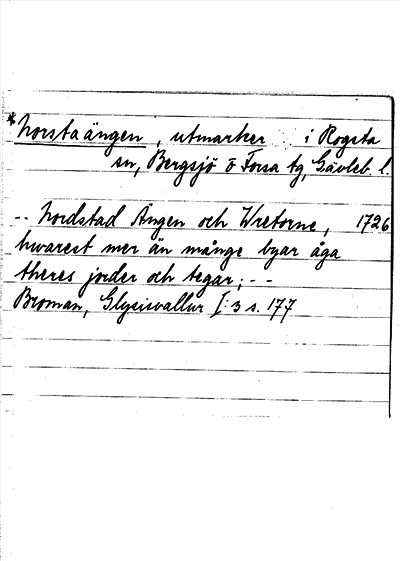 *Norstaängen, utmarker i Rogsta
sn, Bergsjö o Forsa tg, Gävleb. l.
-- Nordstad Ängen och Wretorne, 1726
hwarest mer än månge byar åga
theres jorder och tegar; --
Broman, Glysisvallur I:3 s. 177